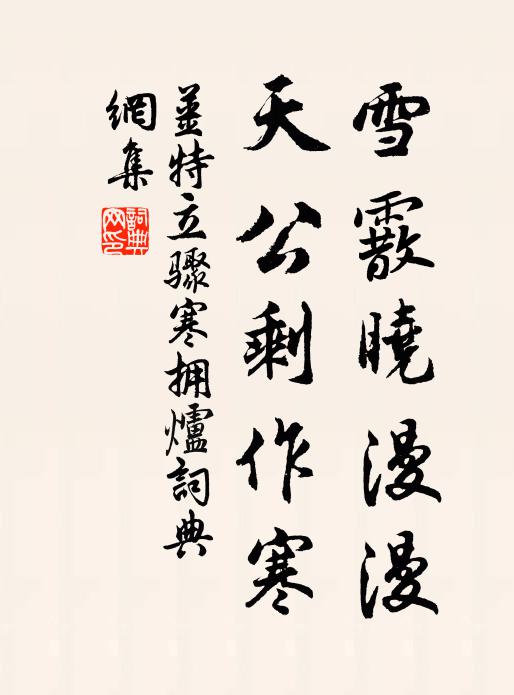 雪霰曉漫漫
天公剩作寒
薑特立驟寒拥爐詞典
網集
詞典
网印